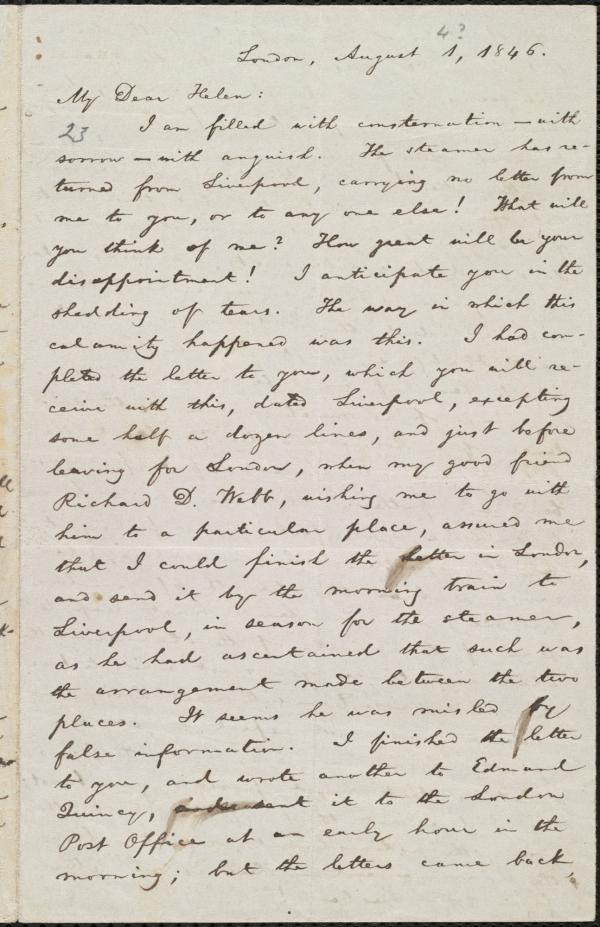 4?
London, August 1, 1846.
My Dear Helen:
23
I am filled with consternation — with
sorrow — with anguish. The steamer has re-
turned from Liverpool, carrying no letter from
me to you, or to any one else! What will
you think of me? How great will be your
disappointment! I anticipate you in the
shedding of tears. The way in which this
calamity happened was this. I had com-
pleted the letter to you, which you will re-
ceive with this, dated Liverpool, excepting
some half a dozen lines, and just before
leaving for London, when my good friend
Richard D. Webb, wishing me to go with
him to a particular place, assured me
that I could finish the letter in London,
and send it by the morning train to
Liverpool, in season for the steamer,
as he had ascertained that such was
the arrangement made between the two
places. It seems he was misled by
false information. I finished the letter
to you, and wrote another to Edmund
Quincy, and sent it to the London
Post Office at an early hour in the
morning; but the letters came back,